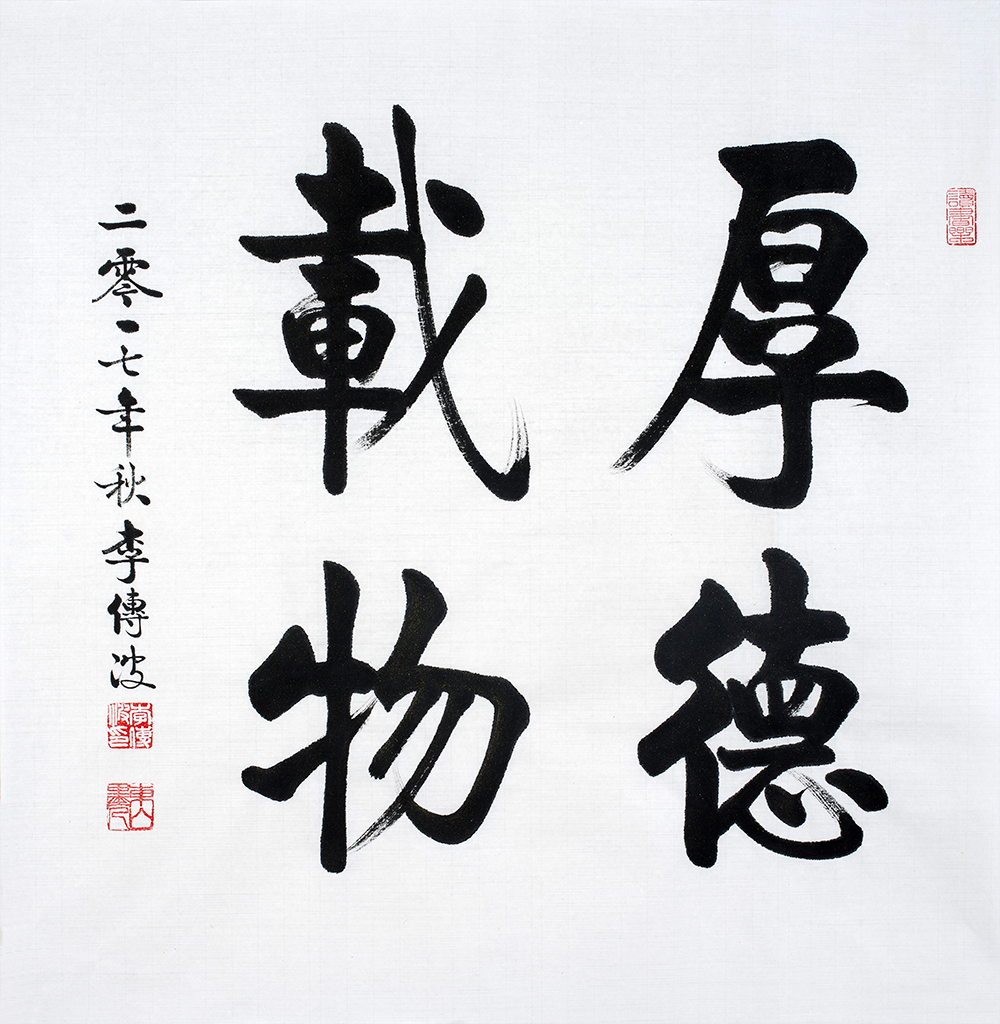 厚德
載物
二零一七年秋李傳波
讀書樂